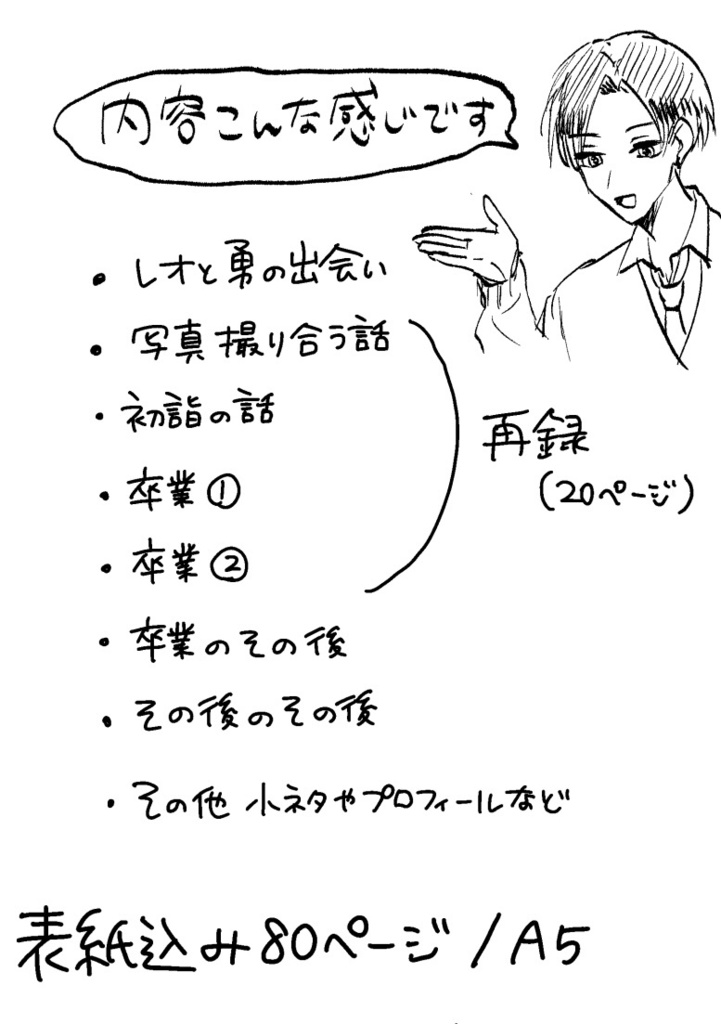 内容こんな感じです
・レオと勇の出会い
・写真撮り合う話
・初詣の話
・卒業①
・卒業②
再録
(20ページ)
・卒業のその後
・その後のその後
・その他 小ネタやプロフィールなど
表紙込み80ページ/A5